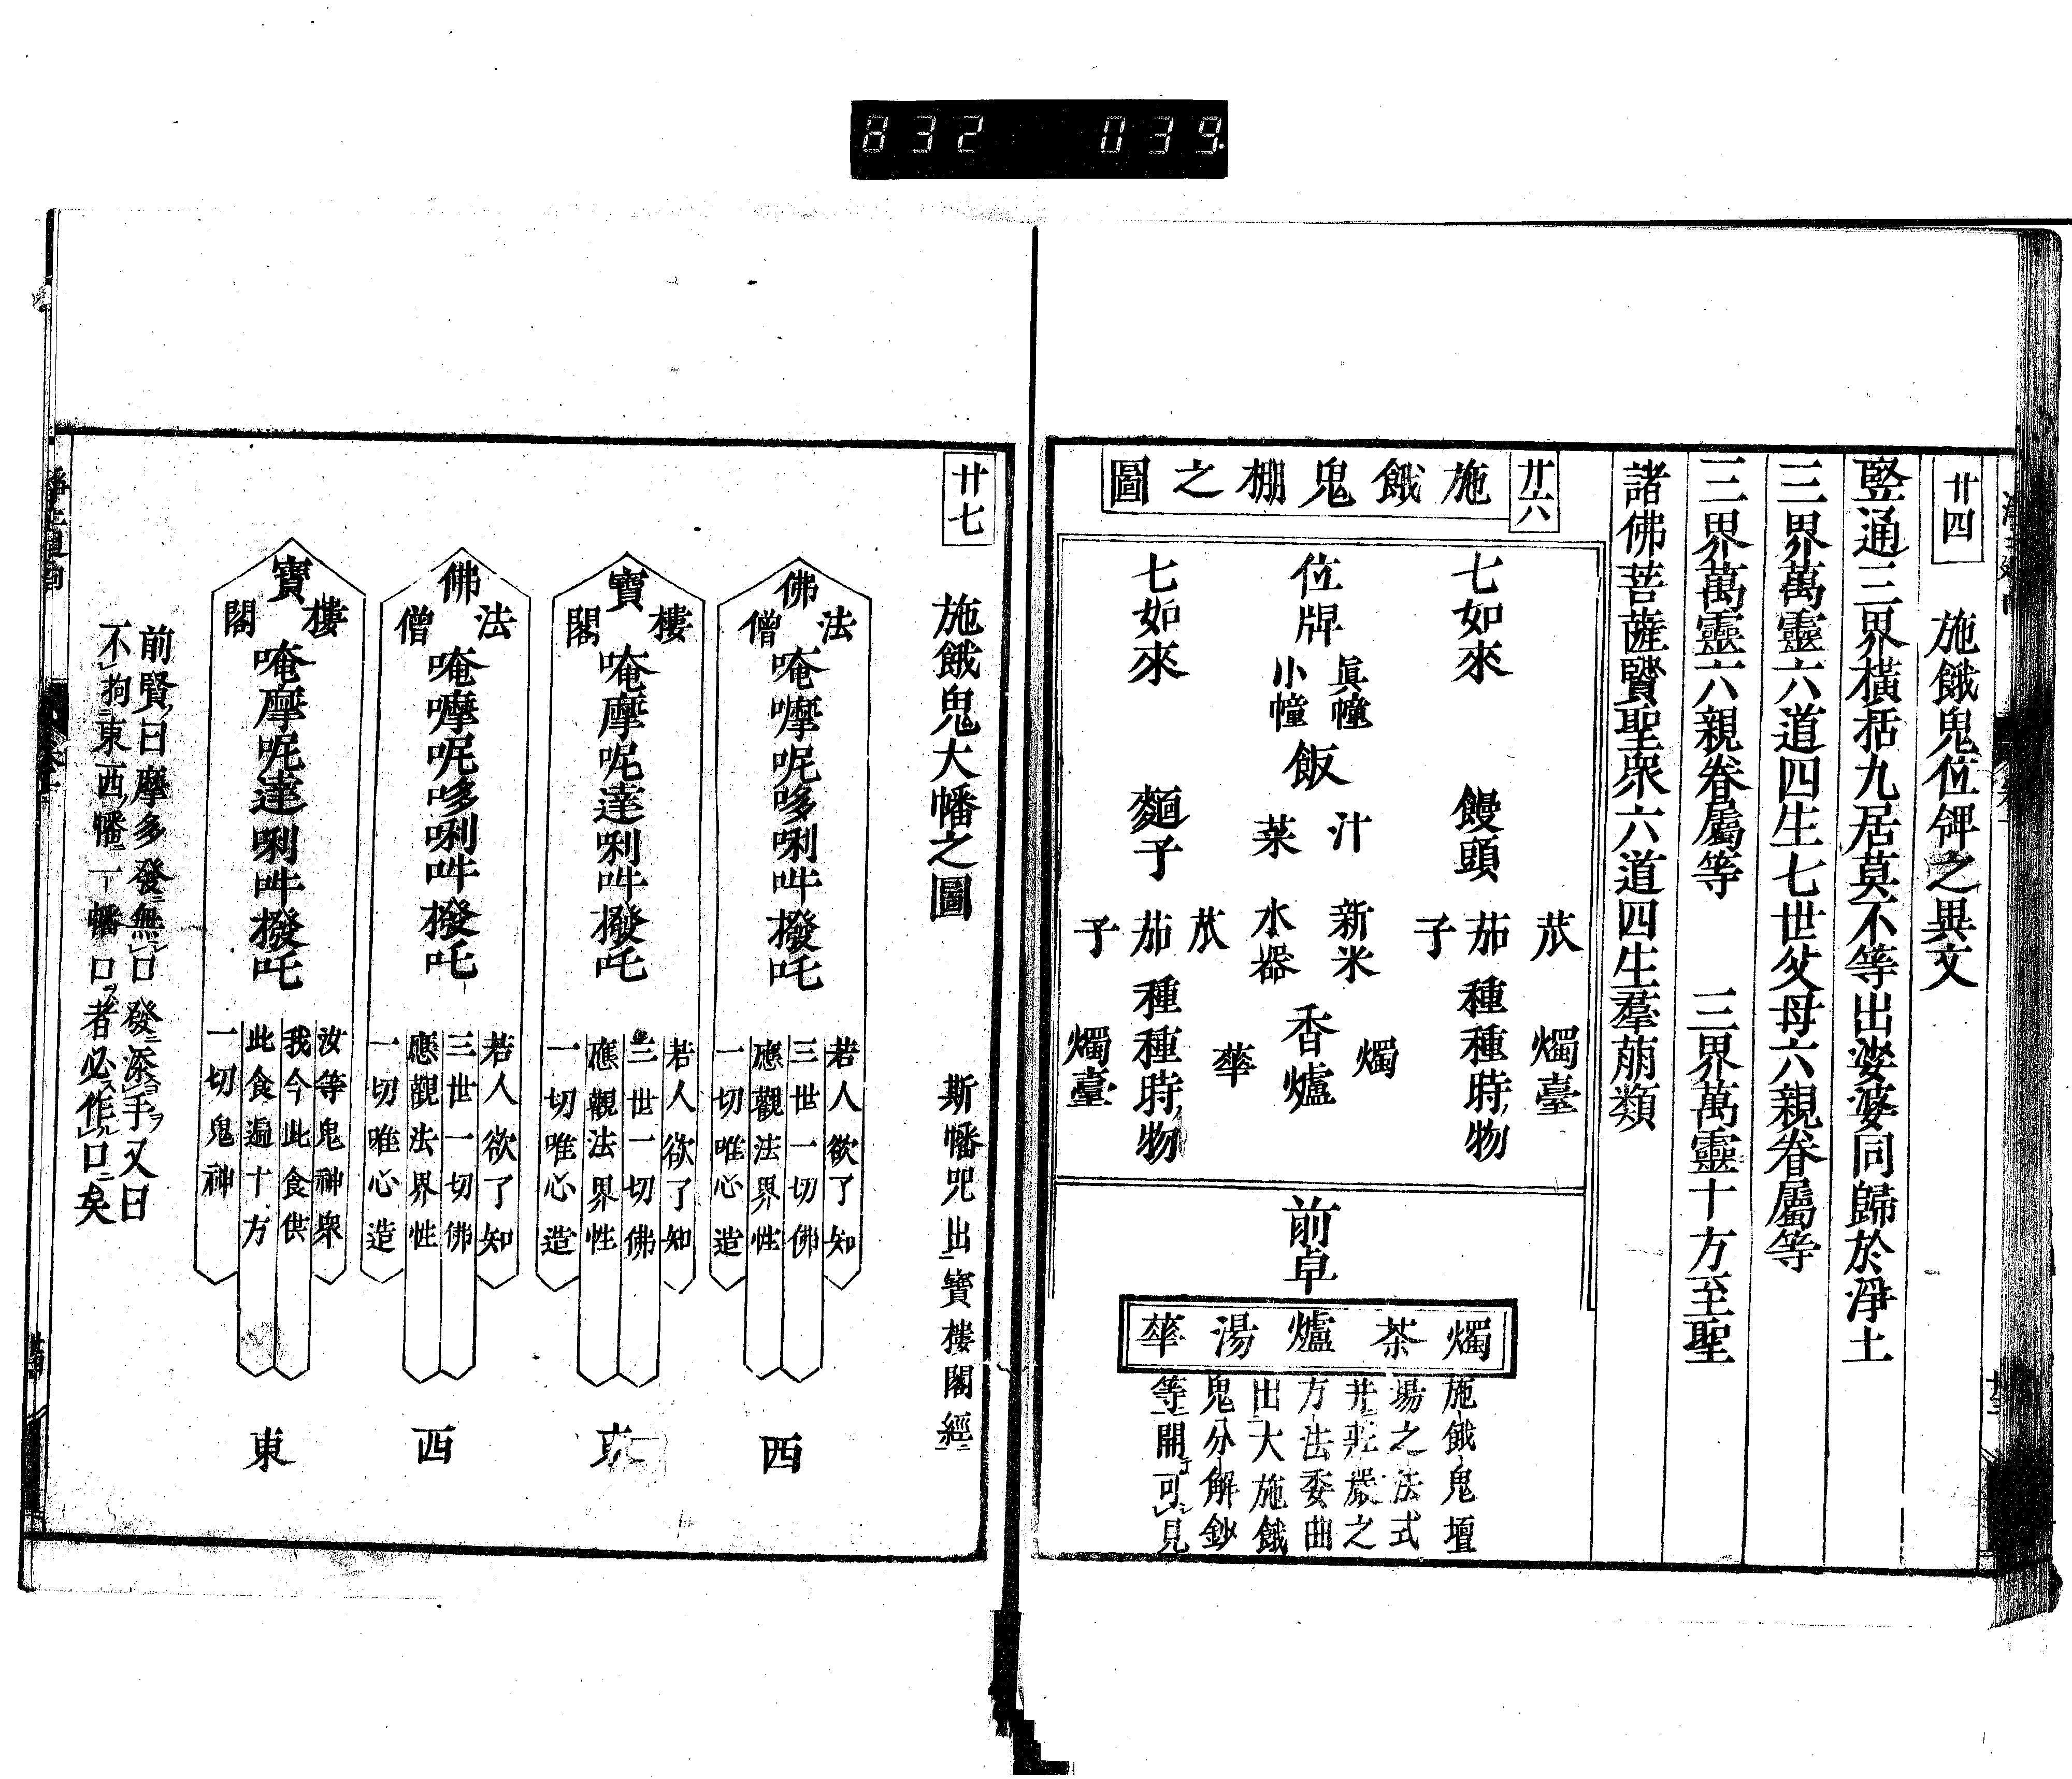 832 039.
廿四 施餓鬼位牌之異文
竪通三界橫括九居莫不等出娑婆同歸於淨土
三界萬靈六道四生七世父母六親眷屬等
三界萬靈六親眷屬等 三界萬靈十方至聖
諸佛菩薩賢聖衆六道四生羣萠類
廿六
施餓鬼棚之圖
七如來 饅頭 茄子 種種時物
苽 燭臺
位牌
眞幢
小幢
飯
汁
菜
新米
水器
香爐
燭
華
七如來 麵子 茄子 種種時物
苽
燭臺
前卓
燭 茶 爐 湯 華
施餓鬼壇
場之法式
并莊嚴之
方法委曲
出大施餓
鬼分解鈔
等開可見
廿七 施餓鬼大幡之圖 斯幡咒出寶樓閣經
佛法僧
唵嚤呢哆唎吽撥吒
若人欲了知
三世一切佛
應觀法界性
一切唯心造
西
寶樓閣
唵摩呢達唎吽撥吒
若人欲了知
三世一切佛
應觀法界性
一切唯心造
佛法僧
唵嚤呢哆唎吽撥吒
若人欲了知
三世一切佛
應觀法界性
一切唯心造
西
寶樓閣
唵摩呢達唎吽撥吒
汝等鬼神衆
我今此食供
此食遍十方
一切鬼神
東
前賢曰摩多發無口發添手又曰
不拘東西幡一幡口者必作口矣